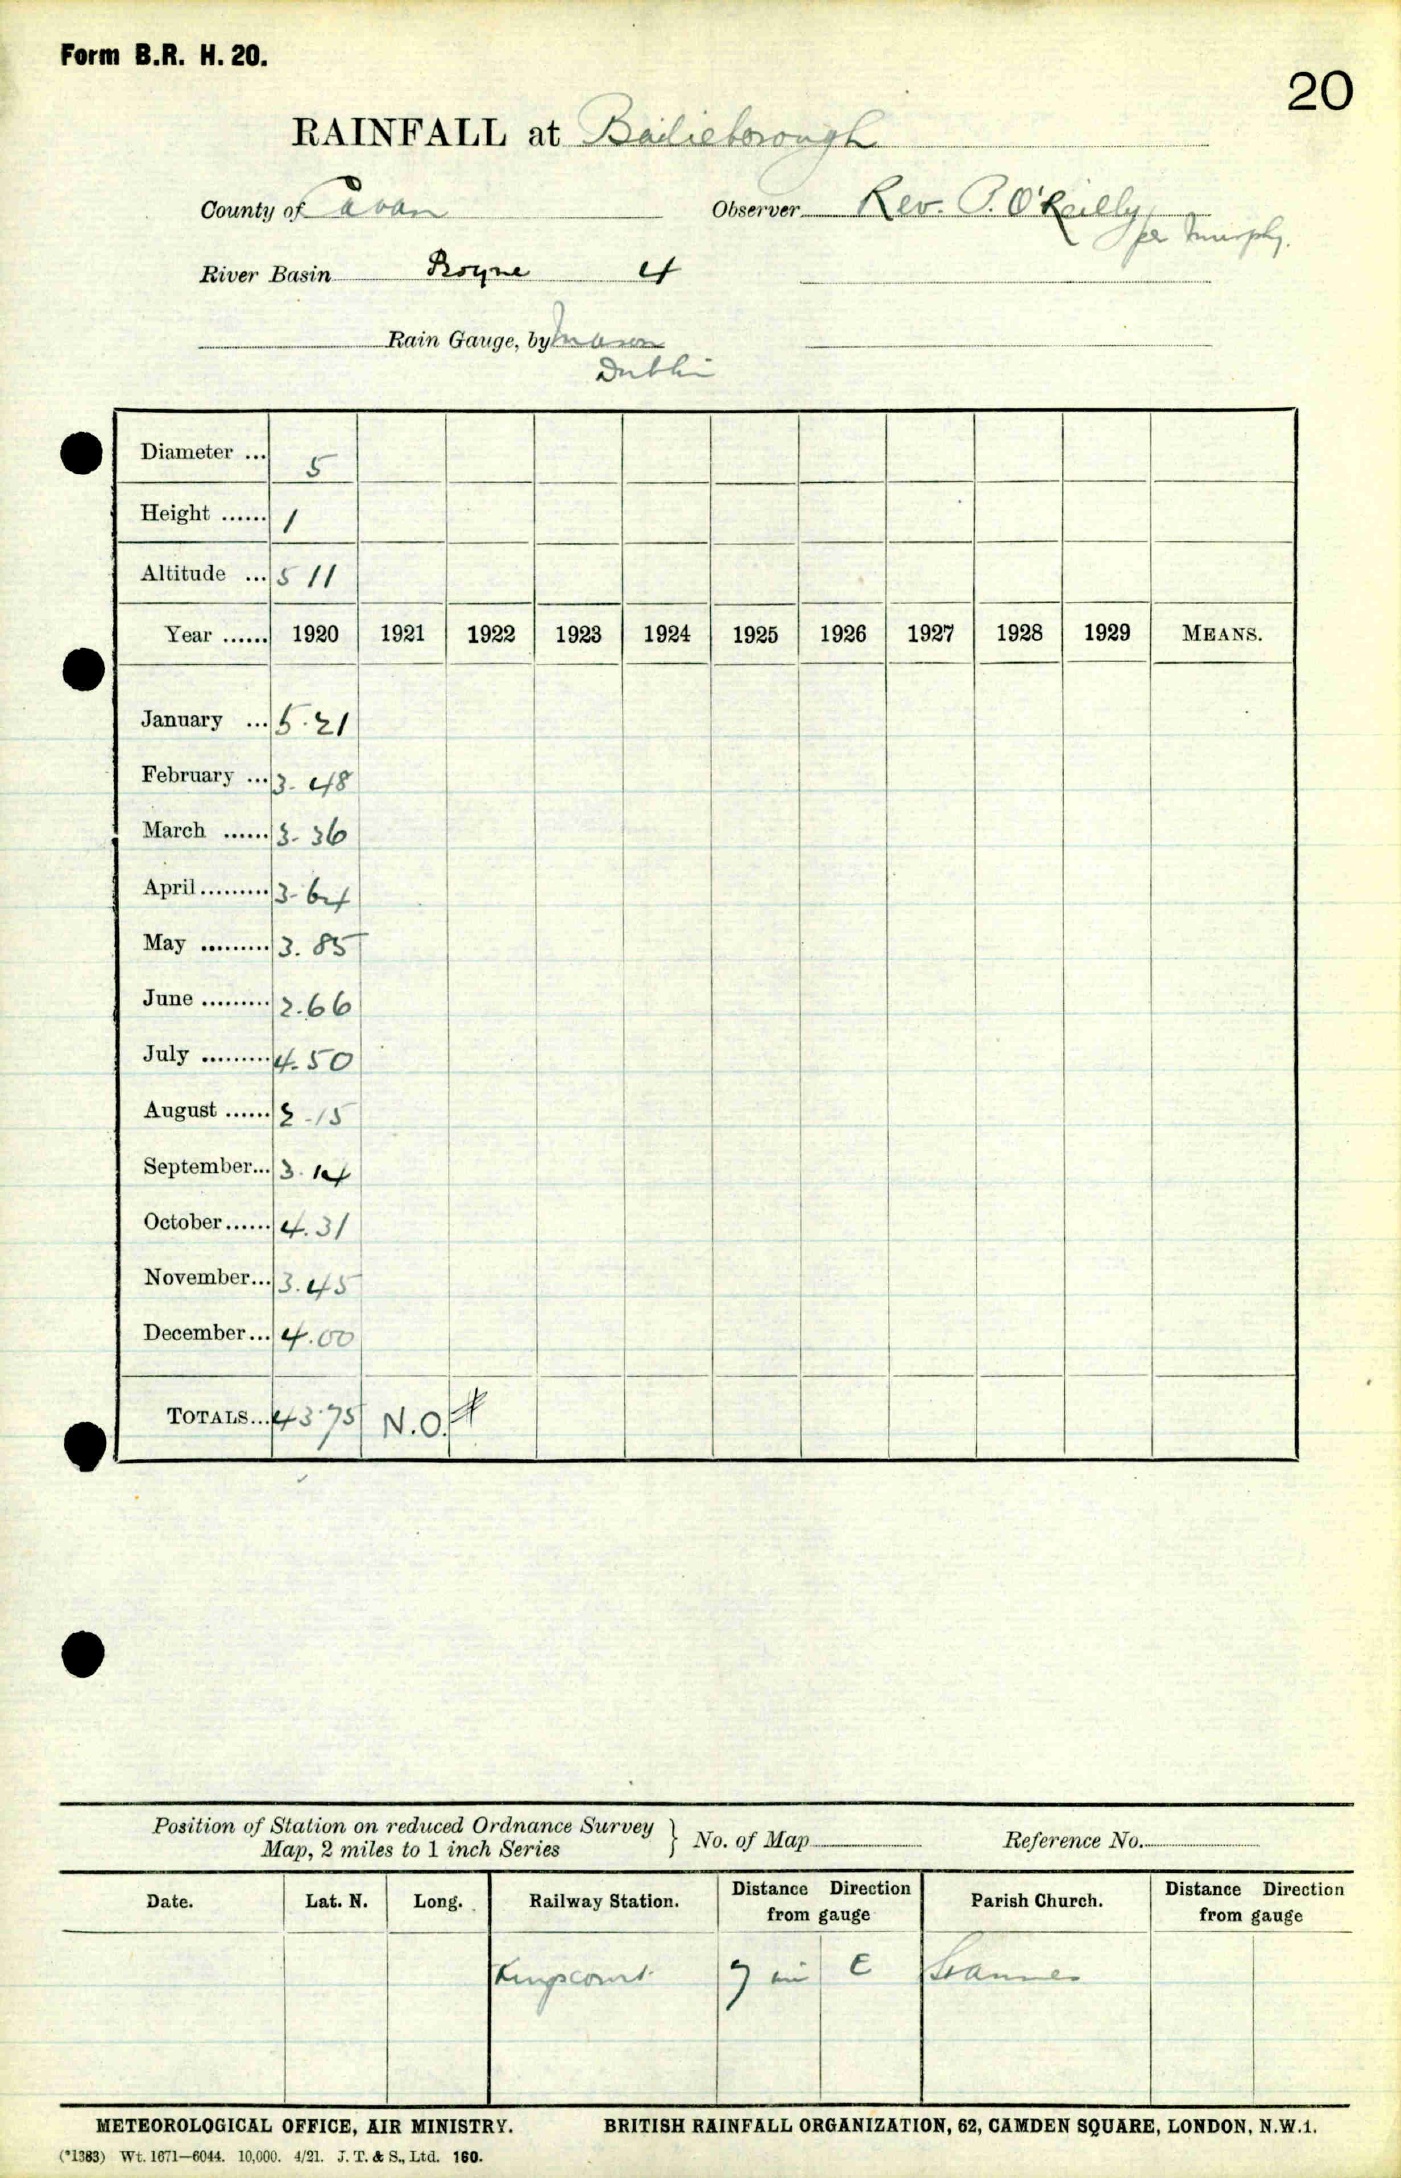 Form B.R. H. 20.
20
RAINFALL at Bailieborough
County of Cavan Observer Rev. P. O'Reilly
per Murphy.
River Basin Boyne 4
Rain Gauge, by Mason
Dublin
Diameter ... 5
Height ...... 1
Altitude ... 511
Year ...... 1920 1921 1922 1923 1924 1925 1926 1927 1928 1929 MEANS.
January ... 5.21
February ... 3.48
March ...... 3.36
April ......... 3.64
May ......... 3.85
June ......... 2.66
July ......... 4.50
August ...... 2.15
September... 3.14
October...... 4.31
November... 3.45
December... 4.00
TOTALS... 43.75 N.O. #
Position of Station on reduced Ordnance Survey
Map, 2 miles to 1 inch Series } No. of Map Reference No.
Date. Lat. N. Long. Railway Station. Distance Direction from gauge Parish Church. Distance Direction from gauge
Kingscourt 7 mi E
METEOROLOGICAL OFFICE, AIR MINISTRY. BRITISH RAINFALL ORGANIZATION, 62, CAMDEN SQUARE, LONDON, N.W.1.
(*1383) Wt. 1671—6044. 10,000. 4/21. J. T. & S., Ltd. 160.